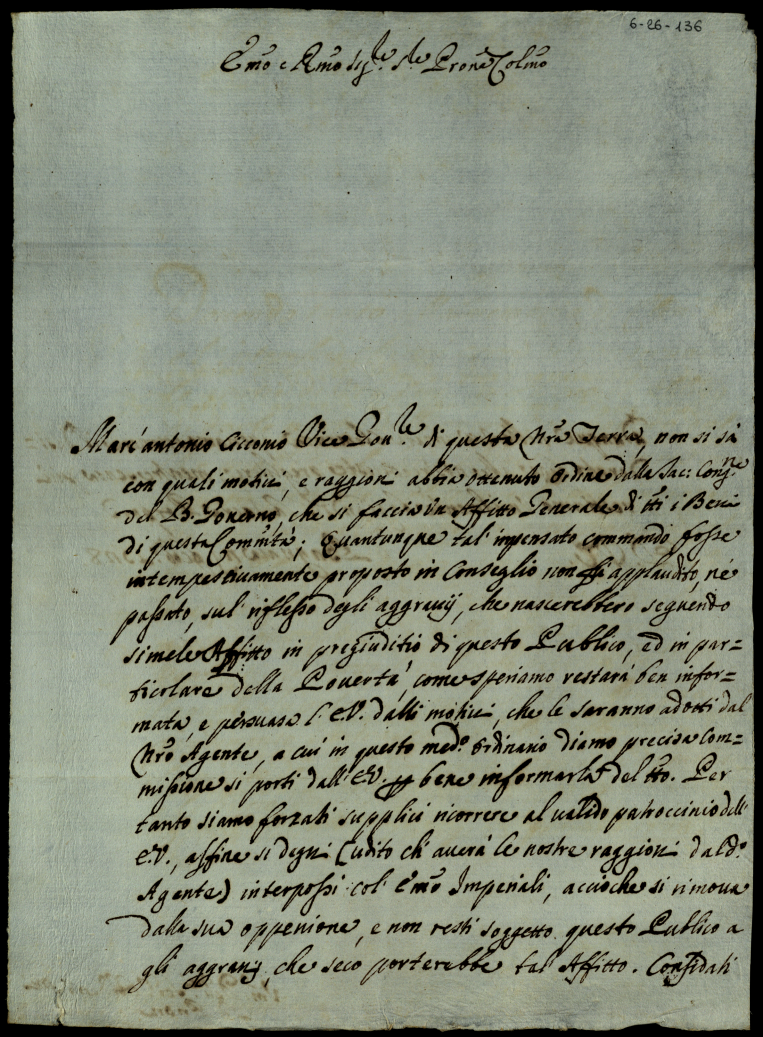 6-26-136
Emo e Rmo Sigre Sre Prone Colmo
Marc'antonio Ciccomo Vice Gonre di questa Nra Terra, non si sà
con quali motivi, e raggioni abbia ottenuto ordine dalla Sac: Congne
del B. Governo, che si faccia un Affitto Generale di tti i Beni
di questa Commtà; Quantunque tal' inpensato commando fosse
intempestivamente proposto in Conseglio non fù applaudito, né
passato, sul' riflesso degli aggravij, che nascerebbero seguendo
simele Affitto in pregiuditio di questo Publico, ed in par=
ticolare della Povertà, come speriamo restarà ben infor=
mata, e persuasa l'E.V. dalli motivi, che le saranno adotti dal
Nro Agente, a cui in questo medo. ordinario diamo precisa com=
missione si porti dall' E.V. p bene informarla del tto. Per
tanto siamo forzati supplici ricorrere al valido patroccinio dell'
E.V., affine si degni (udito ch' averà le nostre raggioni dal do.
Agente) interporsi col' Emo Imperiali, accioche si rimova
dalla sua oppenione, e non resti soggetto questo Publico a
gli aggravij, che seco porterebbe tal' Affitto. Confidati